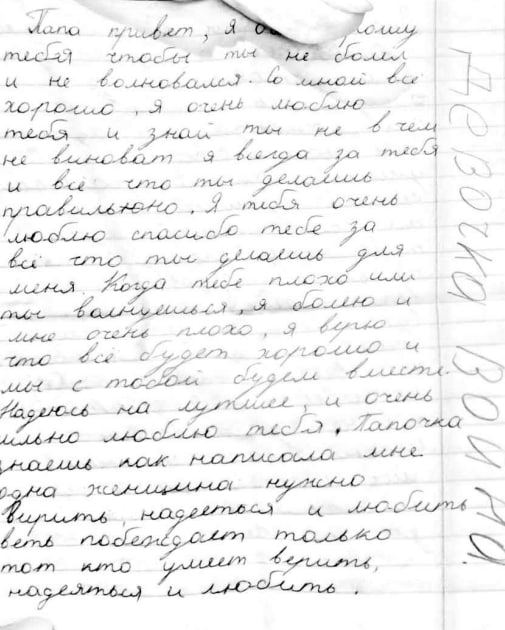 Папа привет, я
тебя чтобы ты не болел
и не волновался. Со мной всё
хорошо, я очень люблю
тебя и знай ты не в чем
не виноват я всегда за тебя
и всё что ты делаешь
правильно. Я тебя очень
люблю спасибо тебе за
всё что ты делаешь для
меня. Когда тебе плохо или
ты волнуешься, я болею и
мне очень плохо, я верю
что всё будет хорошо и
мы с тобой будем вместе.
Надеюсь на лутшее, и очень
сильно люблю тебя. Папочка
знаешь как написала мне
одна женщина нужно
вирить, надееться и любить
веть побеждает только
тот кто умеет верить,
надеяться и любить.
девочка война